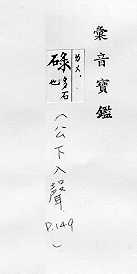 彙音寶鑑
碌
多石
也
(公下入聲
P.149
)